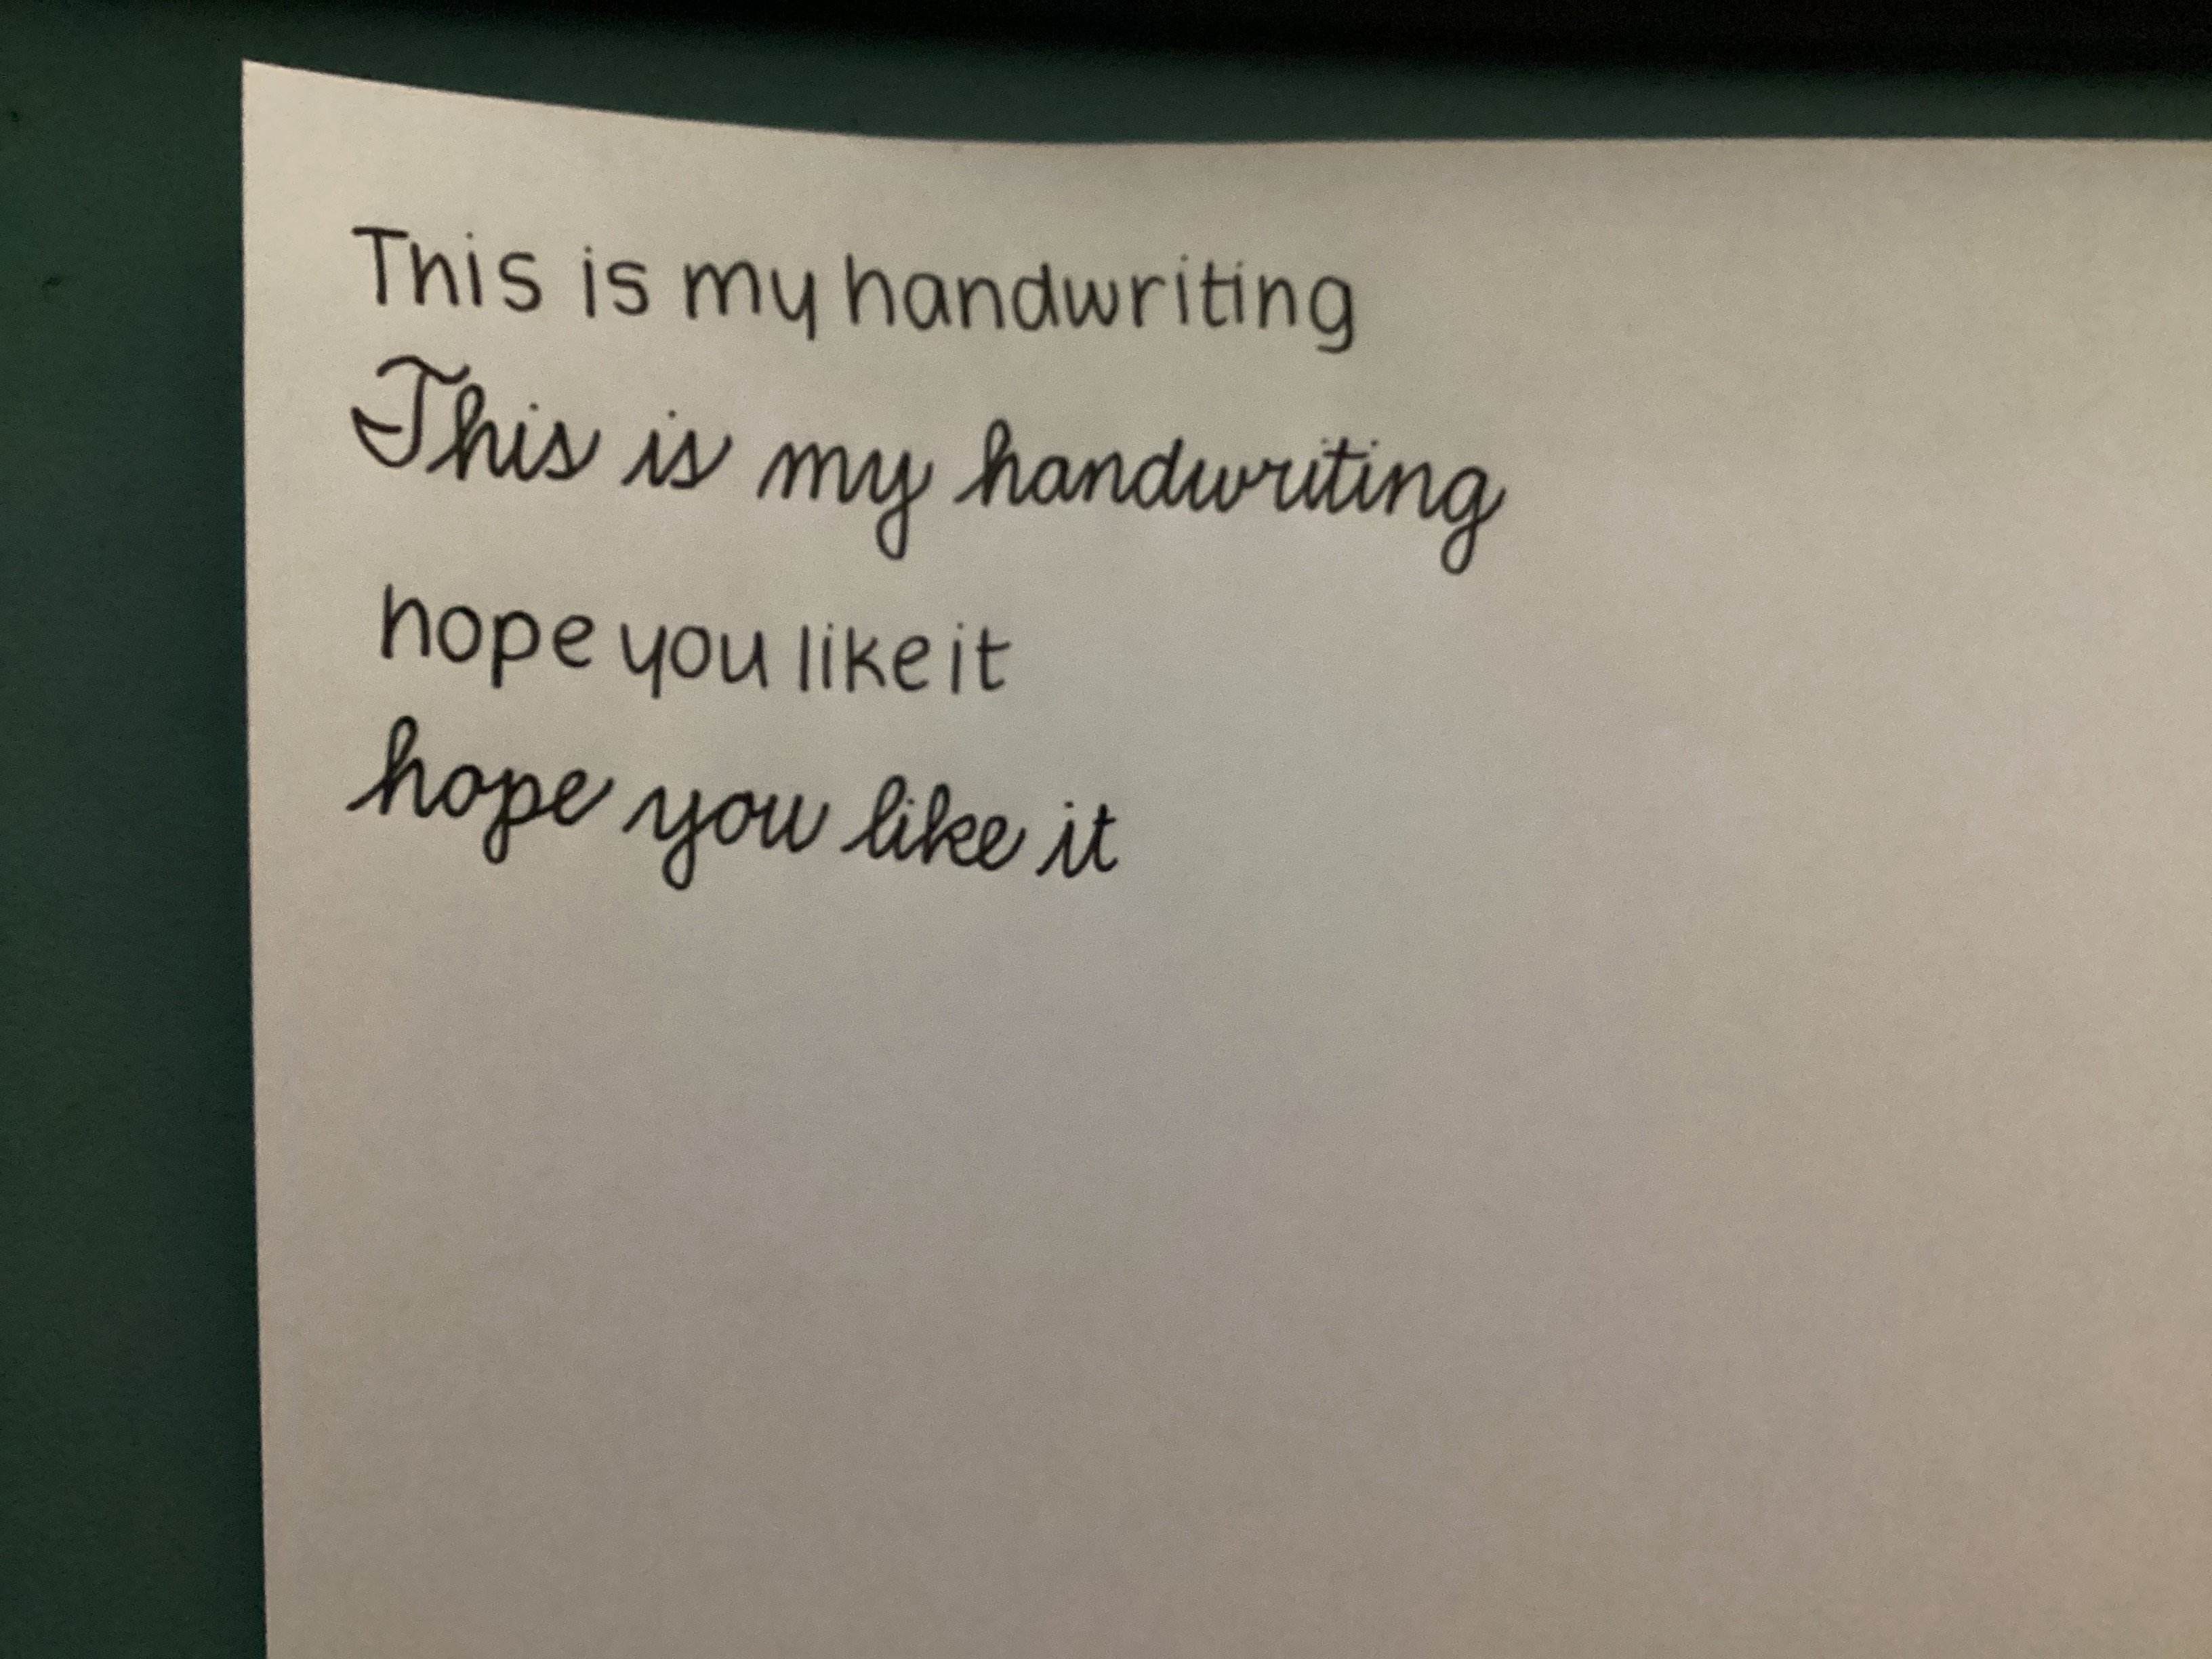 This is my handwriting
This is my handwriting
hope you like it
hope you like it